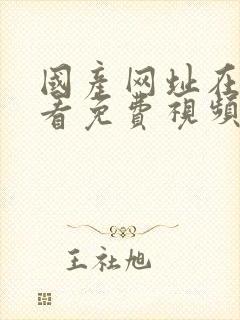 國產网址在
看免費視頻
王社旭